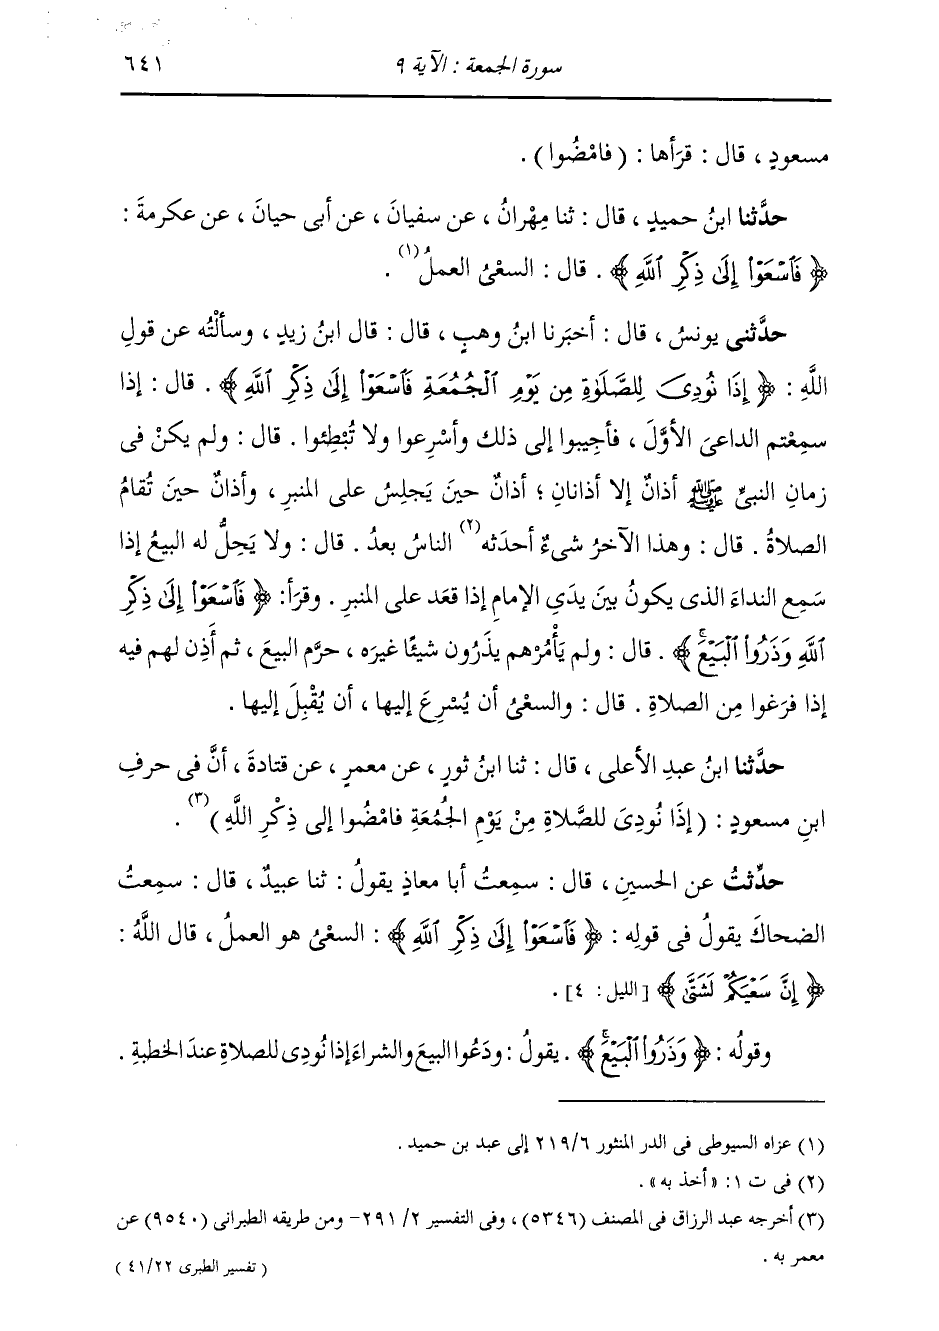 سورة الجمعة : الآية ٩
٦٤١
مسعودٍ ، قال : قرَأها : (فامْضُوا) .
حدَّثنا ابنُ حميدٍ ، قال : ثنا مِهْرانُ ، عن سفيانَ ، عن أبى حيانَ ، عن عكرمةَ :
﴿ فَٱسْعَوْا۟ إِلَىٰ ذِكْرِ ٱللَّهِ ﴾ . قال : السعْىُ العملُ(١) .
حدَّثنى يونسُ ، قال : أخبَرنا ابنُ وهبٍ ، قال : قال ابنُ زيدٍ ، وسألْتُه عن قولِ
اللَّهِ : ﴿ إِذَا نُودِىَ لِلصَّلَوٰةِ مِن يَوْمِ ٱلْجُمُعَةِ فَٱسْعَوْا۟ إِلَىٰ ذِكْرِ ٱللَّهِ ﴾ . قال : إذا
سمِعْتم الداعىَ الأوَّلَ ، فأجِيبوا إلى ذلك وأسْرِعوا ولا تُبْطِئوا . قال : ولم يكنْ فى
زمانِ النبىِّ ﷺ أذانٌ إلا أذانانِ ؛ أذانٌ حينَ يَجلِسُ على المنبرِ ، وأذانٌ حينَ تُقامُ
الصلاةُ . قال : وهذا الآخرُ شىءٌ أحدَثه(٢) الناسُ بعدُ . قال : ولا يَحِلُّ له البيعُ إذا
سَمِع النداءَ الذى يكونُ بينَ يدَىِ الإمامِ إذا قعَد على المنبرِ . وقرَأ: ﴿ فَٱسْعَوْا۟ إِلَىٰ ذِكْرِ
ٱللَّهِ وَذَرُوا۟ ٱلْبَيْعَۚ ﴾ . قال : ولم يَأْمُرْهم يذَرُون شيئًا غيرَه ، حرَّم البيعَ ، ثم أَذِن لهم فيه
إذا فرَغوا مِن الصلاةِ . قال : والسعْىُ أن يُسْرِعَ إليها ، أن يُقْبِلَ إليها .
حدَّثنا ابنُ عبدِ الأعلى ، قال : ثنا ابنُ ثورٍ ، عن معمرٍ ، عن قتادةَ ، أنَّ فى حرفِ
ابنِ مسعودٍ : ( إذَا نُودِىَ للصَّلاةِ مِنْ يَوْمِ الجُمُعَةِ فامْضُوا إلى ذِكْرِ اللَّهِ )(٣) .
حدِّثتُ عن الحسينِ ، قال : سمِعتُ أبا معاذٍ يقولُ : ثنا عبيدٌ ، قال : سمِعتُ
الضحاكَ يقولُ فى قولِه : ﴿ فَٱسْعَوْا۟ إِلَىٰ ذِكْرِ ٱللَّهِ ﴾ : السعْىُ هو العملُ ، قال اللَّهُ :
﴿ إِنَّ سَعْيَكُمْ لَشَتَّىٰ ﴾ [ الليل : ٤] .
وقولُه : ﴿ وَذَرُوا۟ ٱلْبَيْعَۚ ﴾ . يقولُ : ودَعُوا البيعَ والشراءَ إذا نُودِى للصلاةِ عندَ الخطبةِ .
(١) عزاه السيوطى فى الدر المنثور ٢١٩/٦ إلى عبد بن حميد .
(٢) فى ت ١: «أخذ به» .
(٣) أخرجه عبد الرزاق فى المصنف (٥٣٤٦) ، وفى التفسير ٢/ ٢٩١- ومن طريقه الطبرانى (٩٥٤٠) عن
معمر به .
( تفسير الطبرى ٤١/٢٢ )